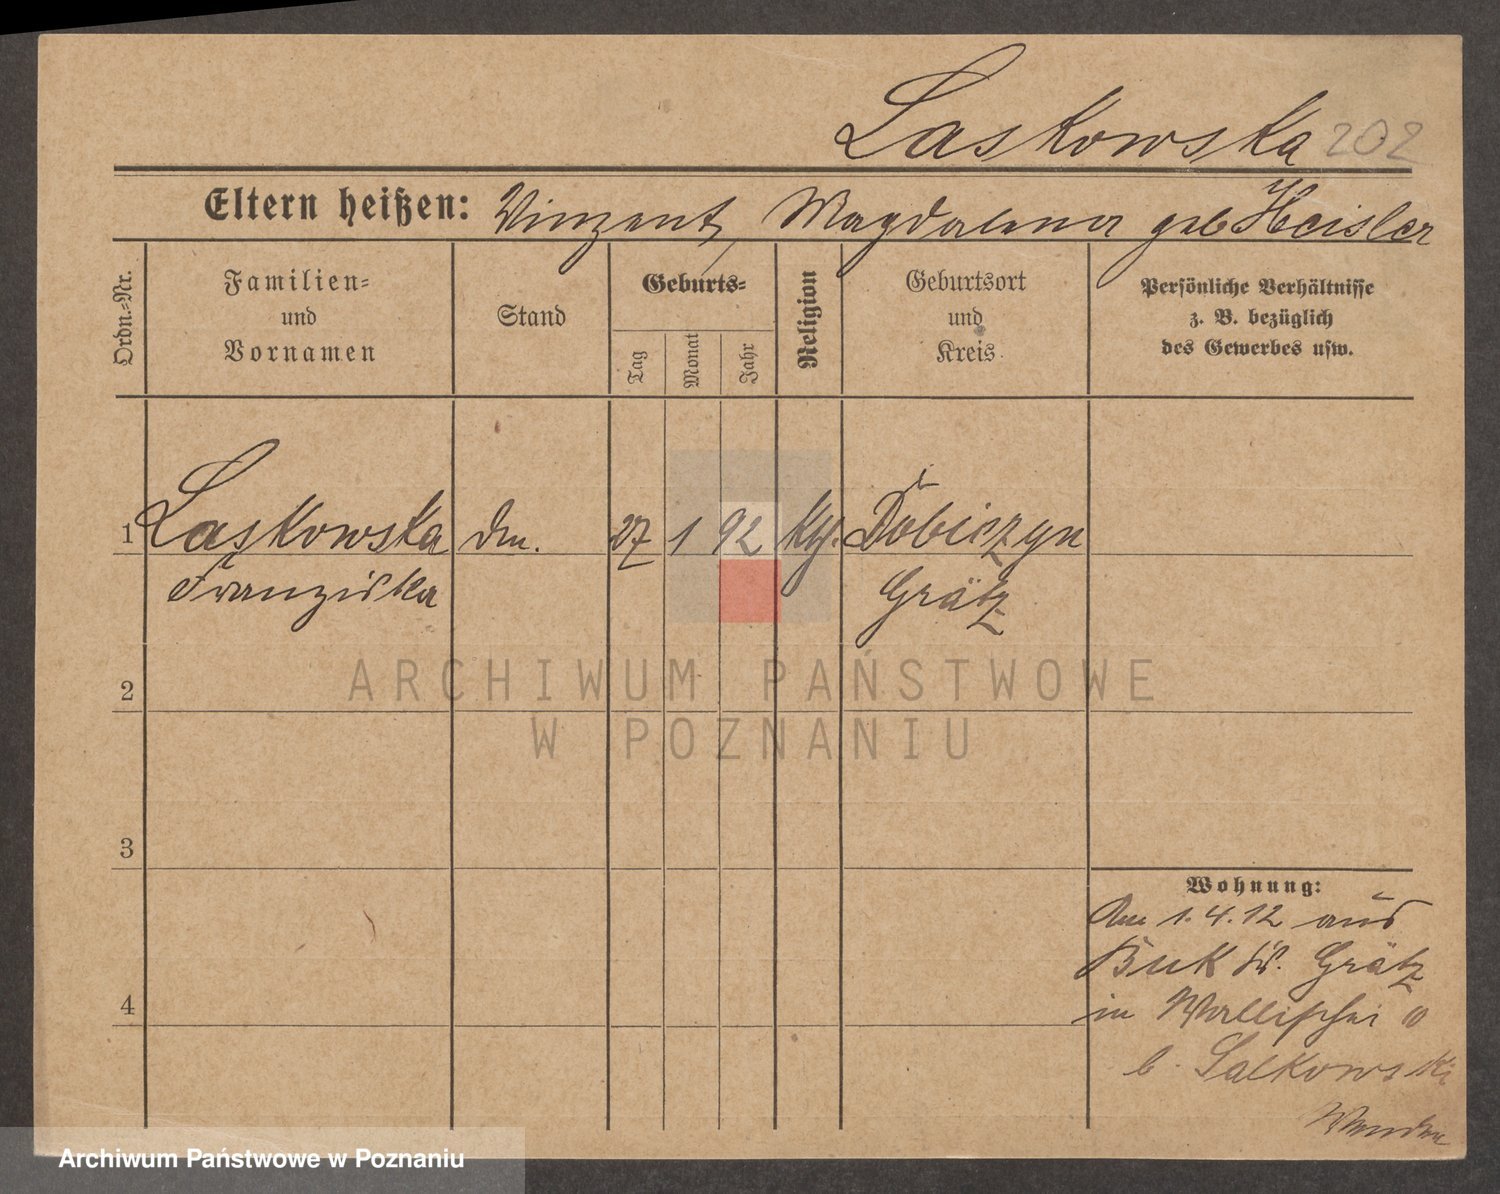 Laskowska 202
Eltern heißen: Vinzent, Magdalena geb Heisler
Ordn.-Nr.
Familien-
und
Vornamen
Stand
Geburts-
Tag
Monat
Jahr
Religion
Geburtsort
und
Kreis
Persönliche Verhältnisse
z. B. bezüglich
des Gewerbes usw.
1 Laskowska 27 1 92 kth. Dobiczyn
Franziska Grätz
2
3
4
Wohnung:
Am 1.4.12 aus
Buk Kr. Grätz
in Wallischei
b. Salkowski
Wenden
ARCHIWUM PAŃSTWOWE
W POZNANIU
Archiwum Państwowe w Poznaniu